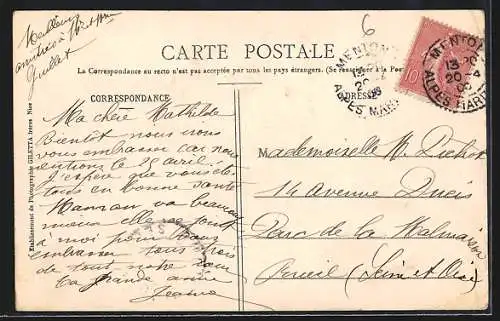 Meilleures
amitiés à
Juillet
6
CARTE POSTALE
La Correspondance au recto n'est pas acceptée par tous les pays étrangers. (Se renseigner à la Poste)
CORRESPONDANCE
ADRESSE
MENTON
13
20
ALPES MARIT
MENTON
13
20-4
ALPES MARIT
10
Etablissement de Photographie GILETTA frères Nice
Ma chère Mathilde
Bientôt nous nous
vous embrasser car nous
rentrons le 25 avril.
J'espère que vous êtes
tous en bonne santé
Maman va beaucoup
mieux elle se joint
à moi pour vous
embrasser tous trois
de tout notre cœur
Ta grande amie
Jeanne
Mademoiselle M.
14 Avenue Ducis
Parc de la Malmaison
Rueil (Seine et Oise)